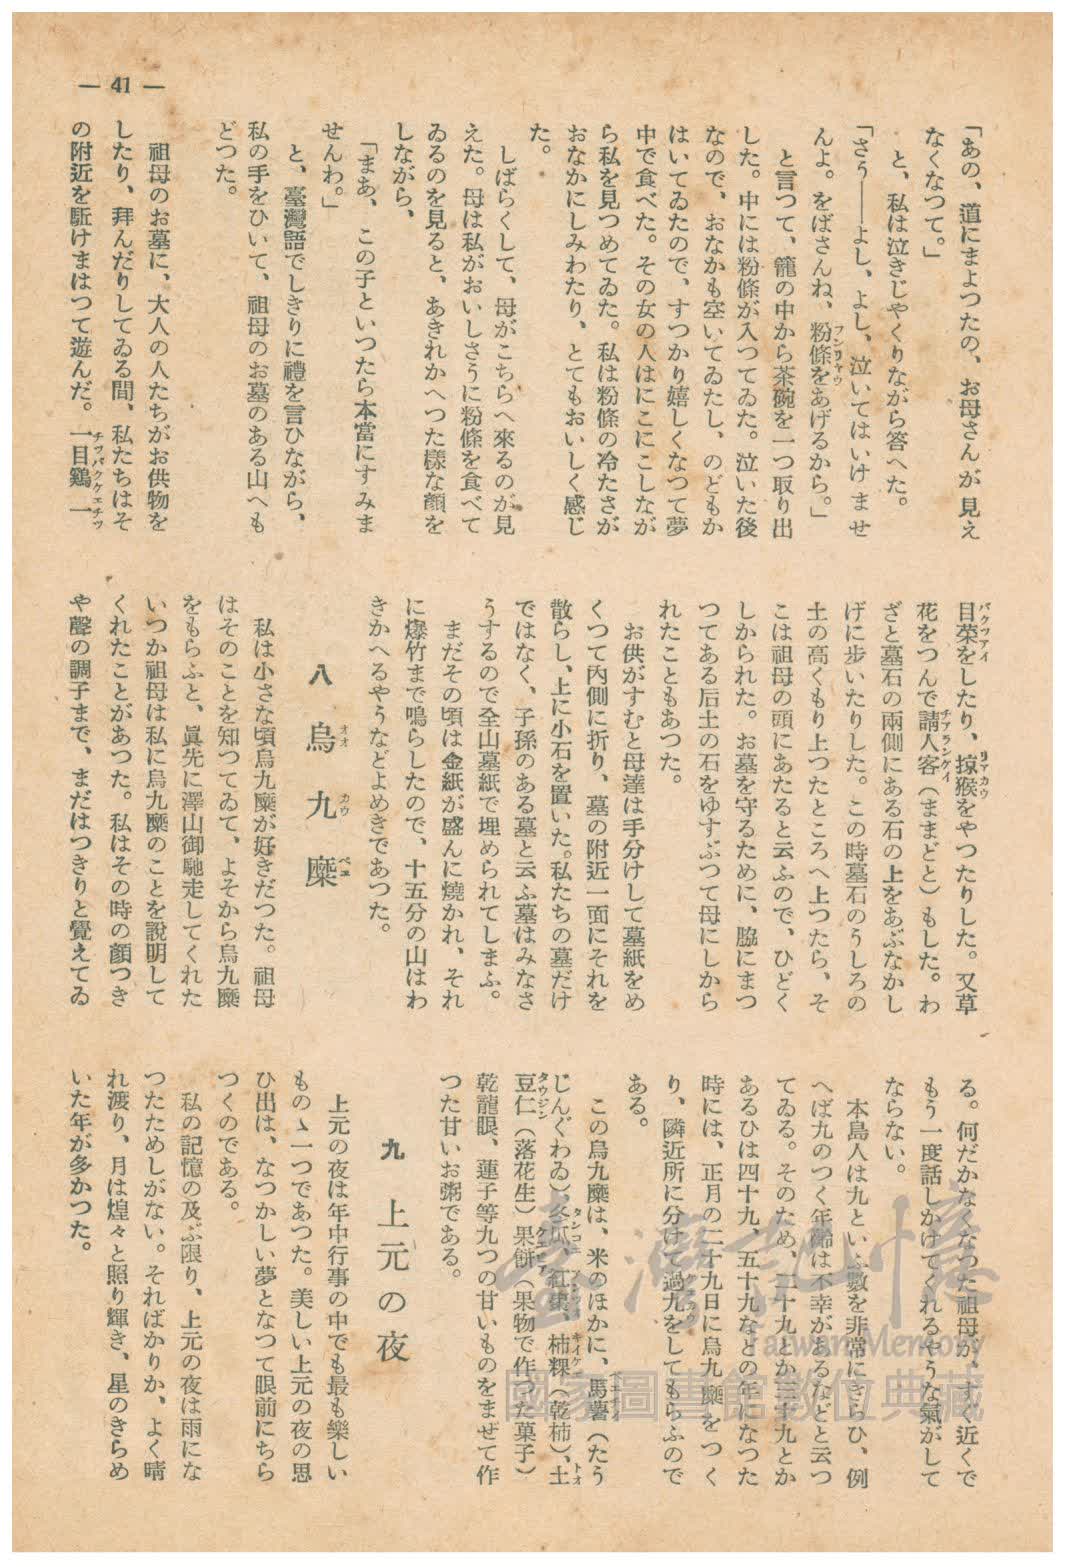 — 41 —
「あの、道にまよつたの、お母さんが見え
なくなつて。」
と、私は泣きじやくりながら答へた。
「さう——よし、よし、泣いてはいけませ
んよ。をばさんね、粉條をあげるから。」
と言つて、籠の中から茶碗を一つ取り出
した。中には粉條が入つてゐた。泣いた後
なので、おなかも空いてゐたし、のどもか
はいてゐたので、すつかり嬉しくなつて夢
中で食べた。その女の人はにこにこしなが
ら私を見つめてゐた。私は粉條の冷たさが
おなかにしみわたり、とてもおいしく感じ
た。
しばらくして、母がこちらへ來るのが見
えた。母は私がおいしさうに粉條を食べて
ゐるのを見ると、あきれかへつた樣な顔を
しながら、
「まあ、この子といつたら本當にすみま
せんわ。」
と、臺灣語でしきりに禮を言ひながら、
私の手をひいて、祖母のお墓のある山へも
どつた。
祖母のお墓に、大人の人たちがお供物を
したり、拜んだりしてゐる間、私たちはそ
の附近を駈けまはつて遊んだ。一目鷄一
目荣をしたり、掠猴をやつたりした。又草
花をつんで請人客（ままどと）もした。わ
ざと墓石の兩側にある石の上をあぶなかし
げに步いたりした。この時墓石のうしろの
土の高くもり上つたところへ上つたら、そ
こは祖母の頭にあたると云ふので、ひどく
しかられた。お墓を守るために、脇にまつ
つてある后土の石をゆすぶつて母にしから
れたこともあつた。
お供がすむと母達は手分けして墓紙をめ
くつて内側に折り、墓の附近一面にそれを
散らし、上に小石を置いた。私たちの墓だけ
ではなく、子孫のある墓と云ふ墓はみなさ
うするので全山墓紙で埋められてしまふ。
まだその頃は金紙が盛んに燒かれ、それ
に爆竹まで鳴らしたので、十五分の山はわ
きかへるやうなどよめきであつた。
八 烏九糜
オオ カウ ベエ
私は小さな頃烏九糜が好きだつた。祖母
はそのことを知つてゐて、よそから烏九糜
をもらふと、眞先に澤山御馳走してくれた
いつか祖母は私に烏九糜のことを說明して
くれたことがあつた。私はその時の顔つき
や聲の調子まで、まだはつきりと覺えてゐ
る。何だかなくなつた祖母が、すぐ近くで
もう一度話しかけてくれるやうな氣がして
ならない。
本島人は九といふ數を非常にきらひ、例
へば九のつく年齢は不幸があるなどと云つ
てゐる。そのため、二十九とか三十九とか
あるひは四十九、五十九などの年になつた
時には、正月の二十九日に烏九糜をつく
り、隣近所に分けて過九をしてもらふので
ある。
この烏九糜は、米のほかに、馬薯（たう
じんぐわゐ）冬瓜、紅棗、柿粿（乾柿）、土
豆仁（落花生）果餅（果物で作つた菓子）
乾龍眼、蓮子等九つの甘いものをまぜて作
つた甘いお粥である。
九 上元の夜
上元の夜は年中行事の中でも最も樂しい
ものゝ一つであつた。美しい上元の夜の思
ひ出は、なつかしい夢となつて眼前にちら
つくのである。
私の記憶の及ぶ限り、上元の夜は雨にな
つたためしがない。そればかりか、よく晴
れ渡り、月は煌々と照り輝き、星のきらめ
いた年が多かつた。
臺灣記憶
Taiwan Memory
國家圖書館數位典藏